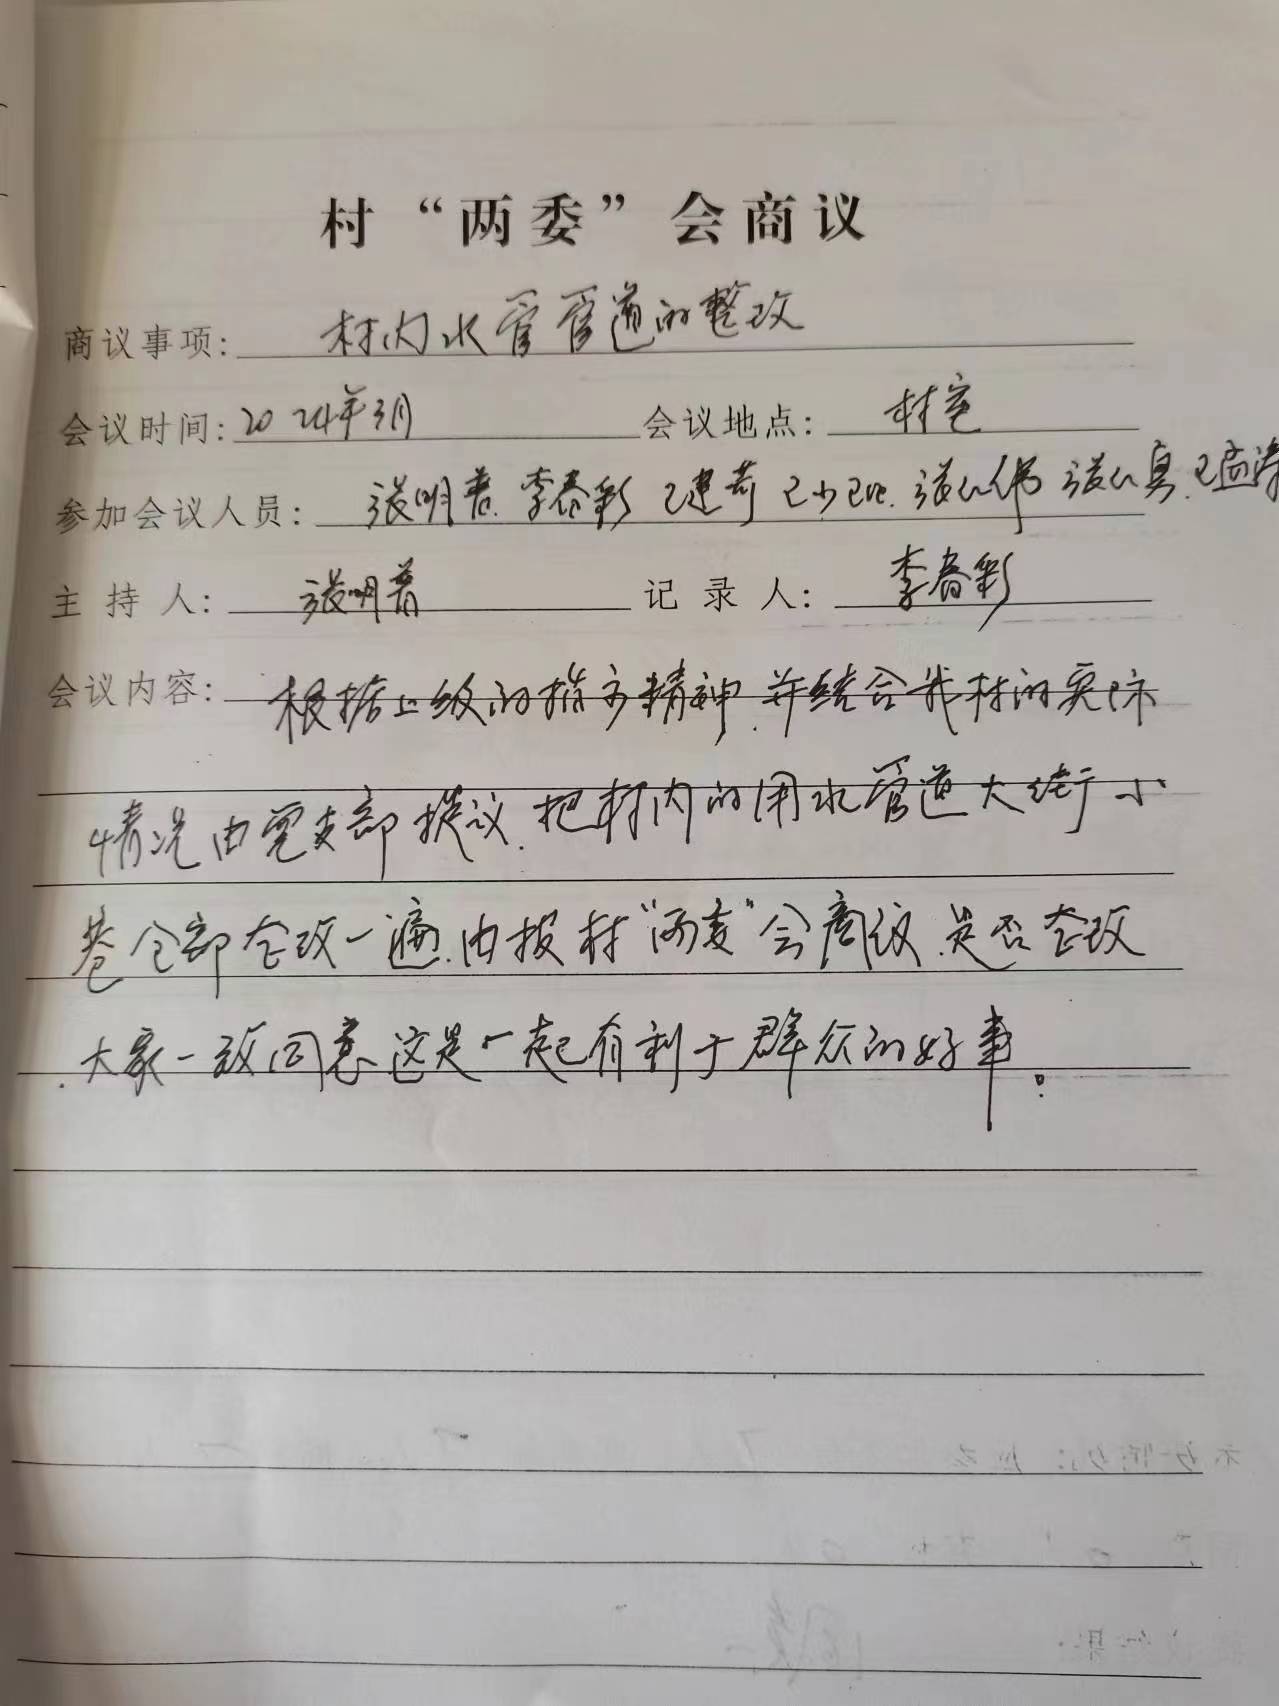 村“两委”会商议
商议事项: 村内水管管道的整改
会议时间: 2024年3月 会议地点: 村室
参加会议人员: 张明普 李春彩
主持人: 张明普 记录人: 李春彩
会议内容: 根据上级的指示精神.并结合我村的实际
情况由党支部提议.把村内的用水管道大街小
巷全部改一遍.由报村“两委”会商议.是否改
.大家一致同意这是一起有利于群众的好事。